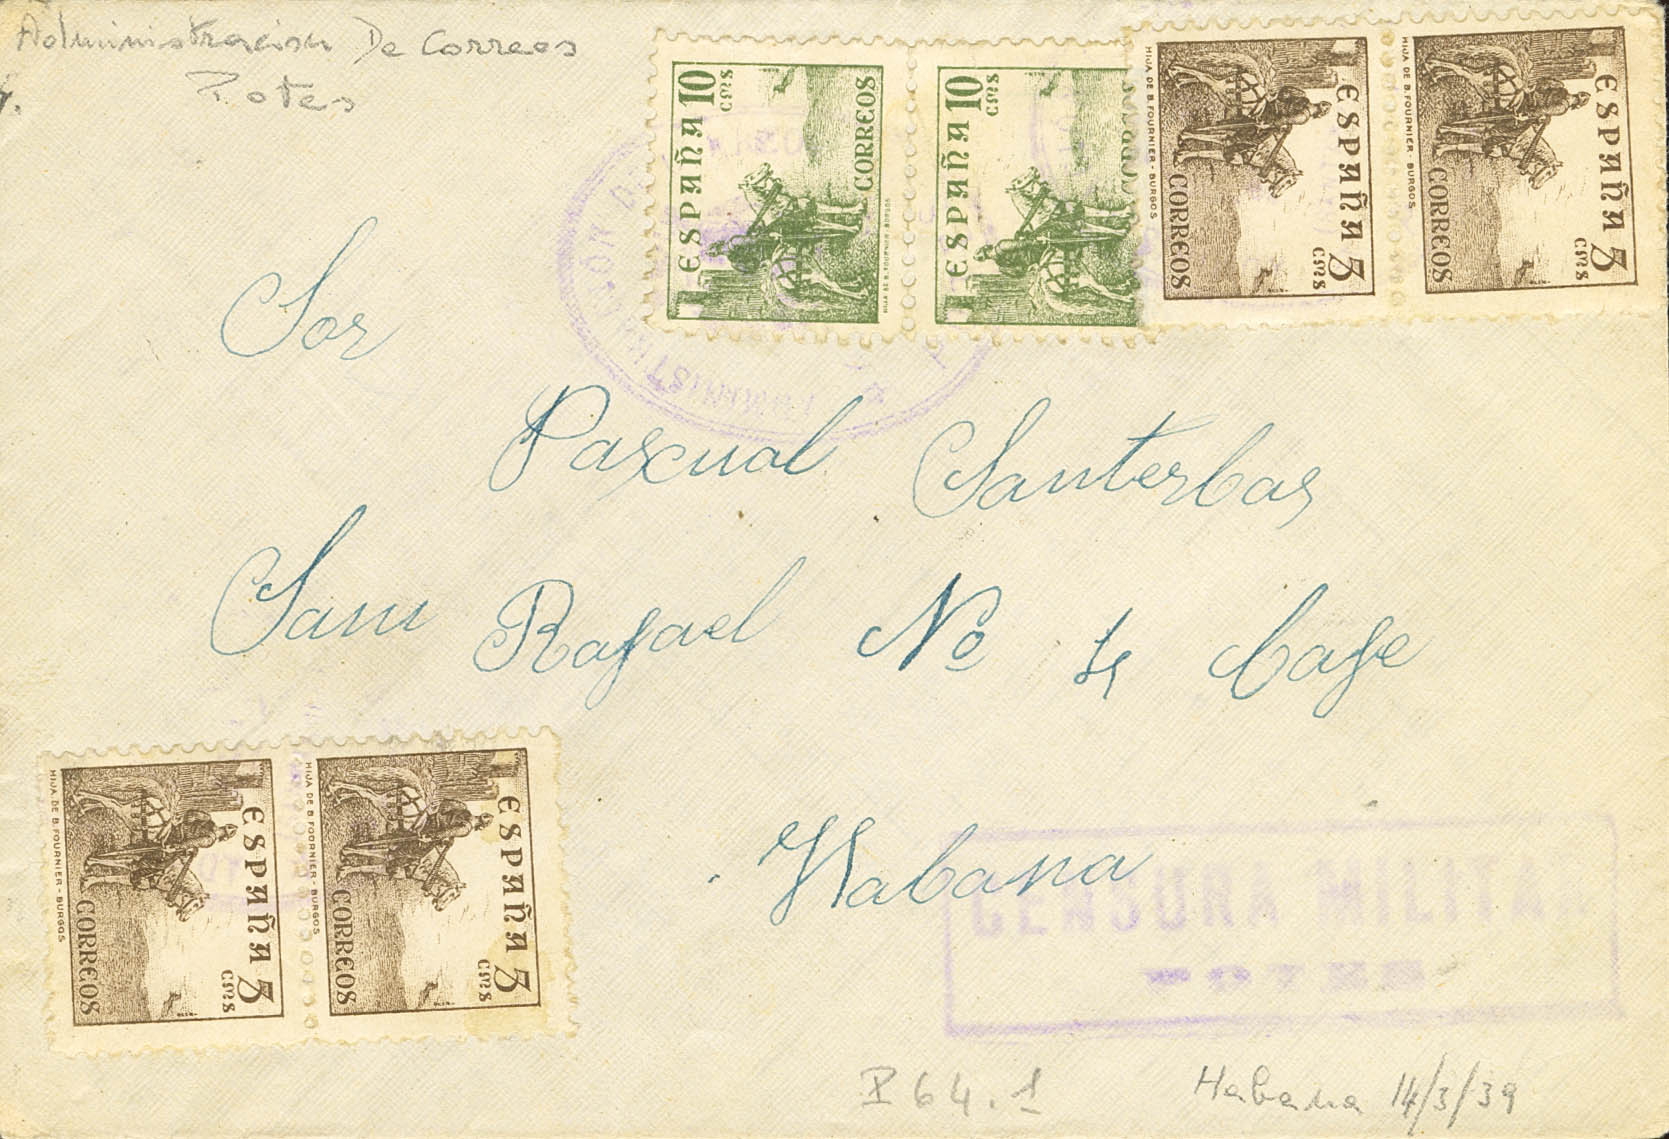 Administracion De Correos
Potes
ESPAÑA 10 CMS
CORREOS
HIJA DE B. FOURNIER - BURGOS
ESPAÑA 10 CMS
ESPAÑA 5 CMS
CORREOS
HIJA DE B. FOURNIER - BURGOS
ESPAÑA 5 CMS
CORREOS
HIJA DE B. FOURNIER - BURGOS
Sor
Pascual Santerbas
San Rafael No 4 Cafe
Habana
ESPAÑA 5 CMS
CORREOS
HIJA DE B. FOURNIER - BURGOS
ESPAÑA 5 CMS
CORREOS
HIJA DE B. FOURNIER - BURGOS
CENSURA MILITAR
POTES
P 64.1
Habana 14/3/39